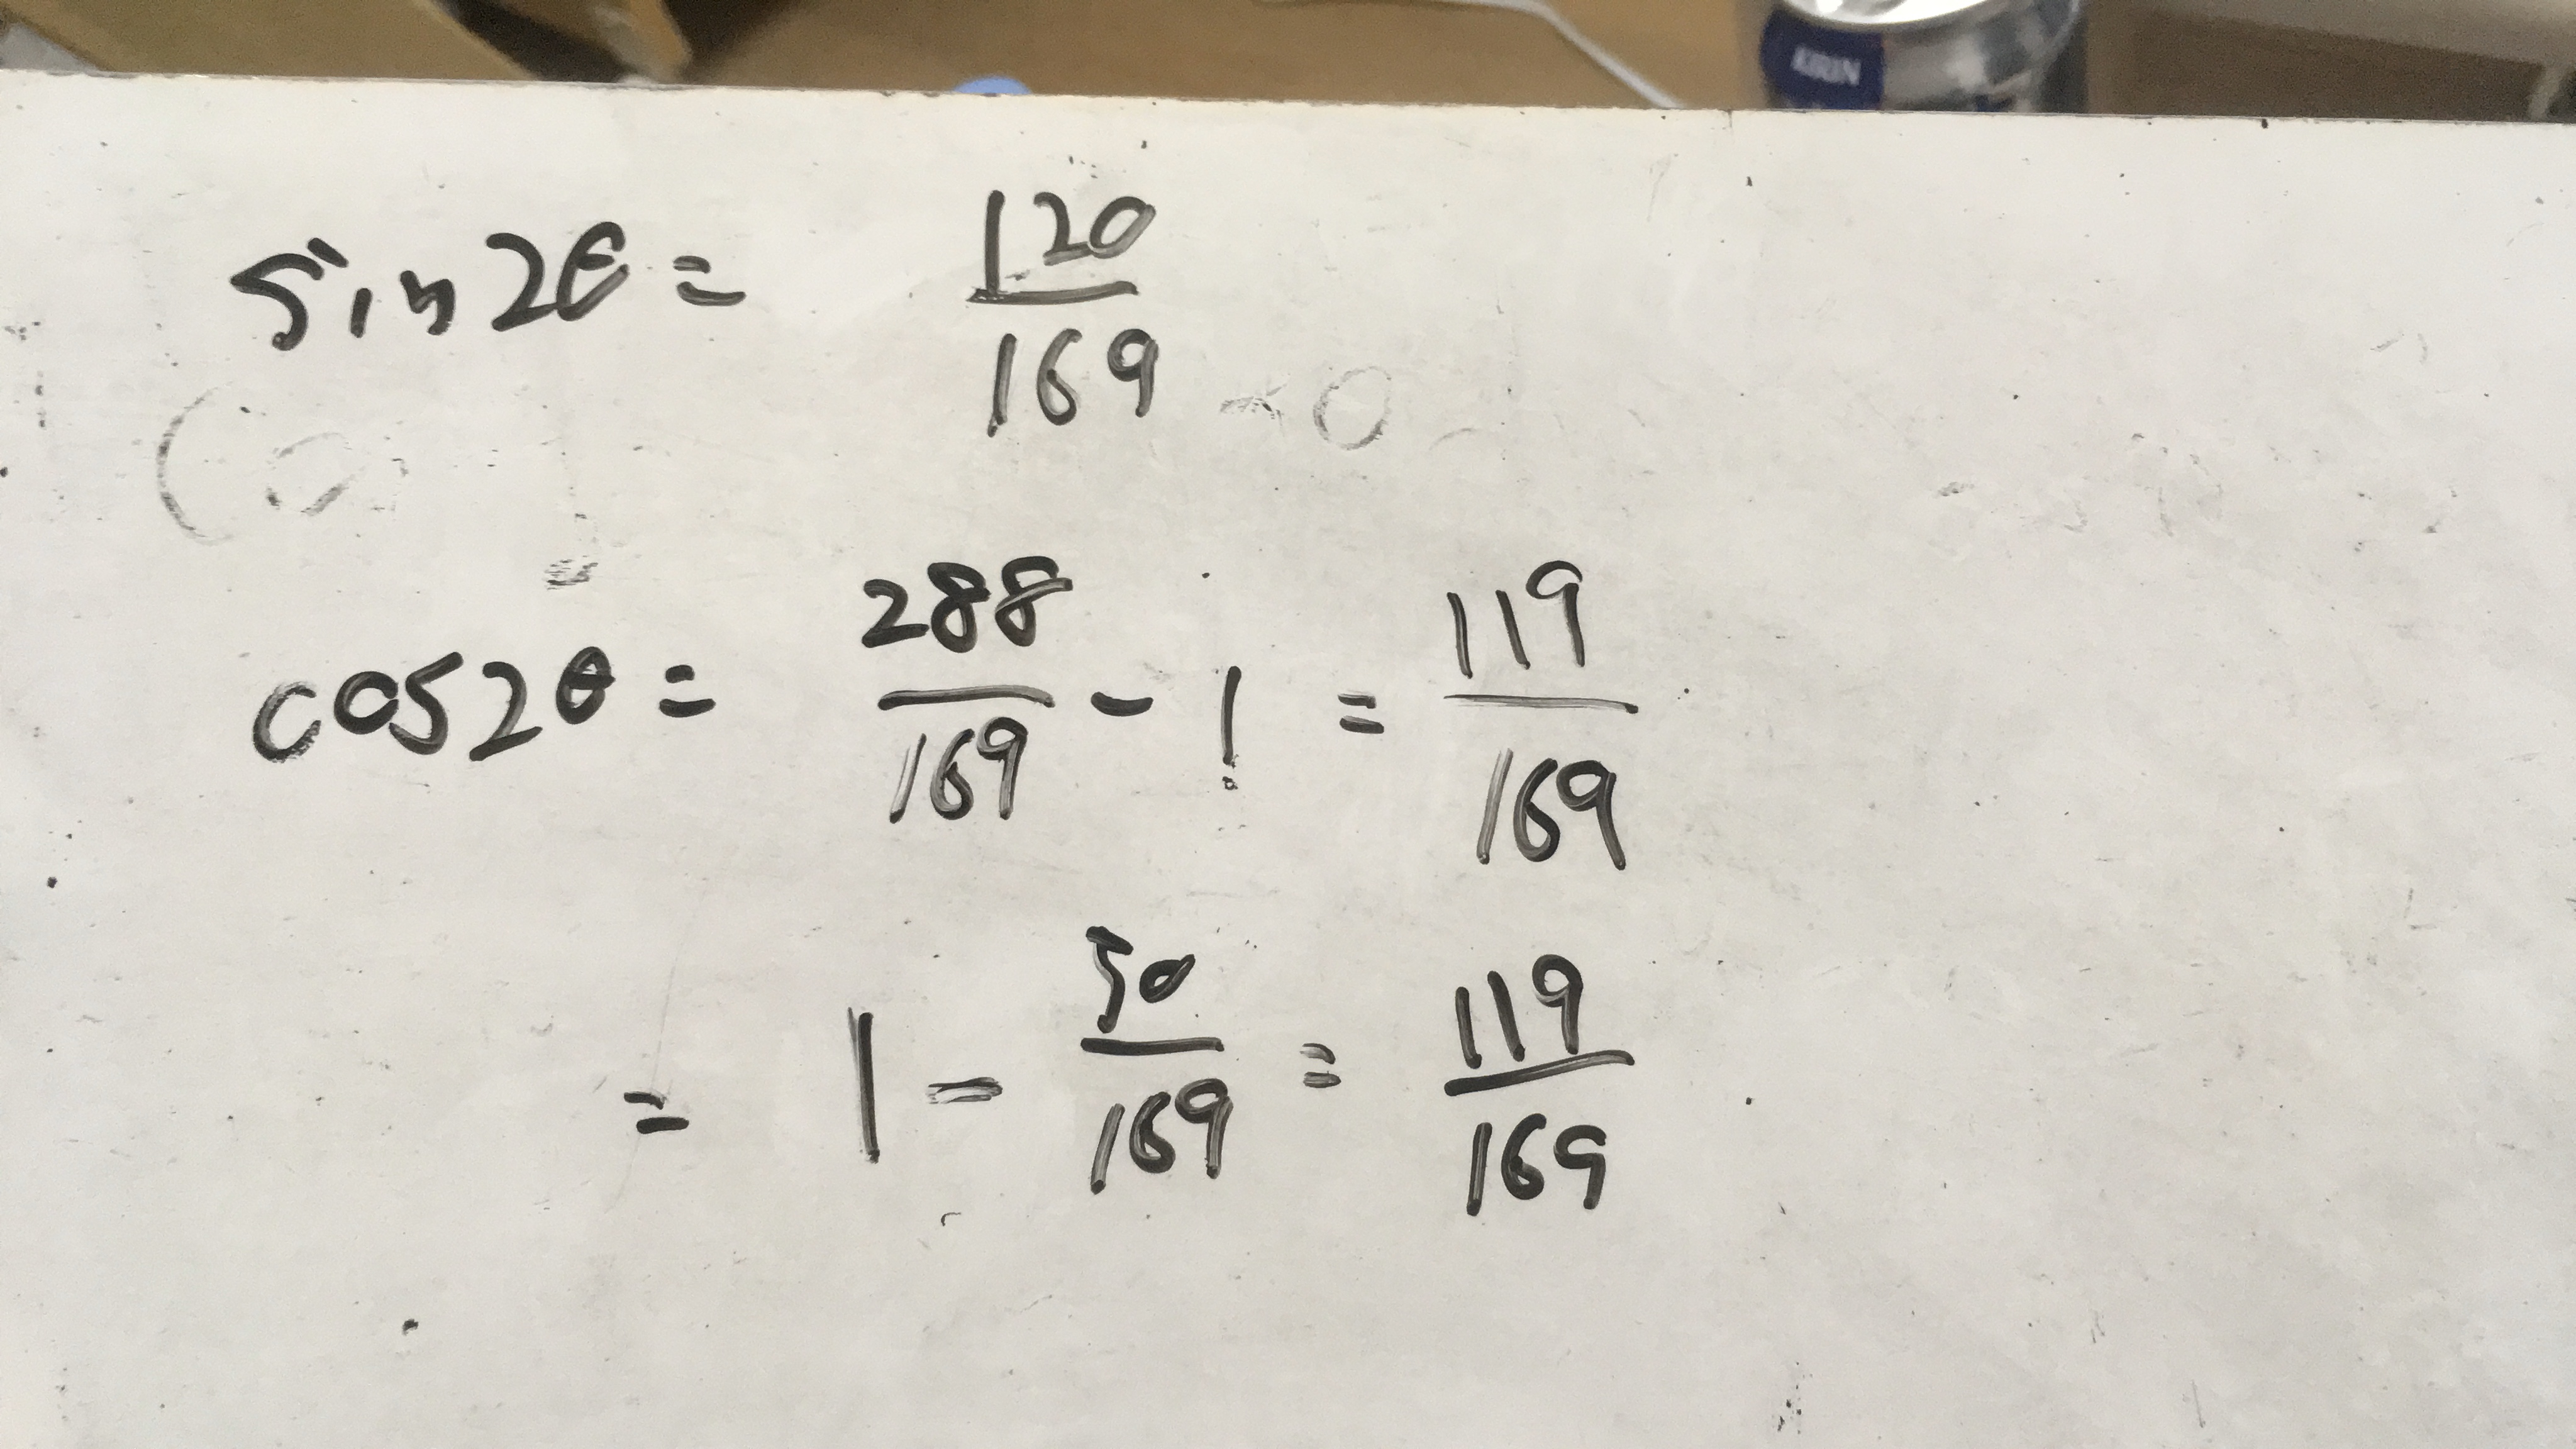 KIRIN
sin2θ = 120/169
cos2θ = 288/169 - 1 = 119/169
= 1 - 50/169 = 119/169